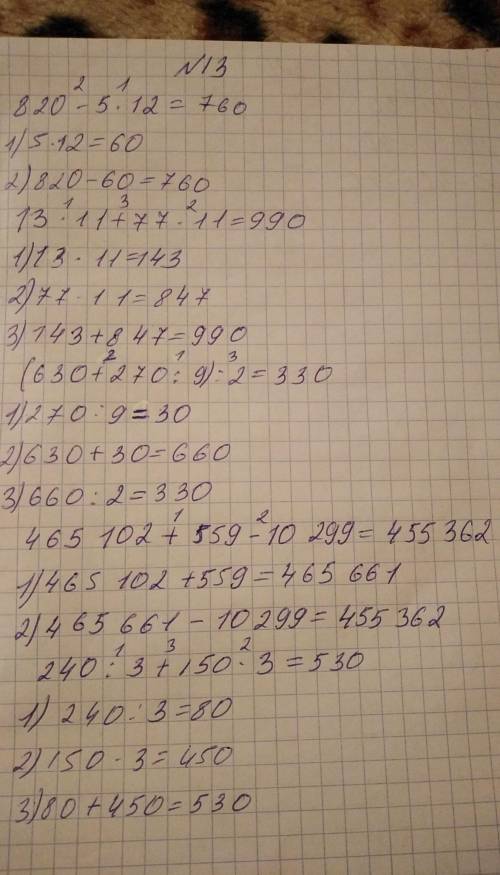 N13
820 - 5 · 12 = 760
1) 5·12=60
2) 820-60=760
13 · 11+77 · 11=990
1) 13 · 11=143
2) 77 · 11=847
3) 143+847=990
(630+270÷9)÷2=330
1) 270÷9=30
2) 630+30=660
3) 660:2=330
465 102 + 559 - 10 299 = 455 362
1) 465 102 +559 = 465 661
2) 465 661 - 10 299 = 455 362
240 ÷ 3 + 150 · 3 = 530
1) 240 ÷ 3 = 80
2) 150 · 3 = 450
3) 80+450=530